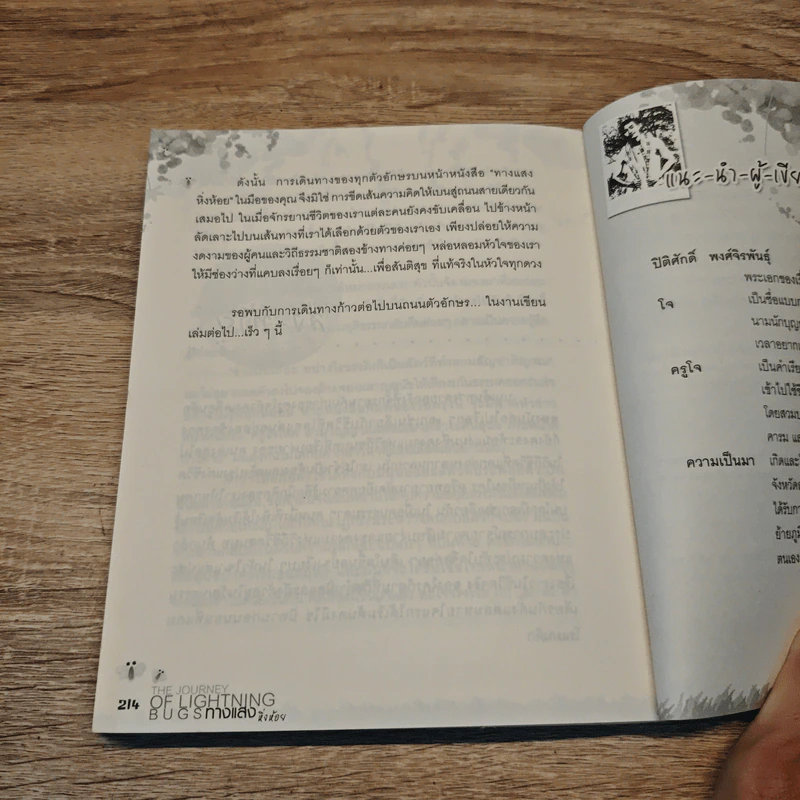 ดังนั้น การเดินทางของทุกตัวอักษรบนหน้าหนังสือ "ทางแสง
หิ่งห้อย" ในมือของคุณ จึงมิใช่ การขีดเส้นความคิดให้เบนสู่ถนนสายเดียวกัน
เสมอไป ในเมื่อจักรยานชีวิตของเราแต่ละคนยังคงขับเคลื่อน ไปข้างหน้า
ลัดเลาะไปบนเส้นทางที่เราได้เลือกด้วยตัวของเราเอง เพียงปล่อยให้ความ
งดงามของผู้คนและวิถีธรรมชาติสองข้างทางค่อยๆ หล่อหลอมหัวใจของเรา
ให้มีช่องว่างที่แคบลงเรื่อยๆ ก็เท่านั้น...เพื่อสันติสุข ที่แท้จริงในหัวใจทุกดวง
รอพบกับการเดินทางก้าวต่อไปบนถนนตัวอักษร... ในงานเขียน
เล่มต่อไป...เร็ว ๆ นี้
214
THE JOURNEY
OF LIGHTNING
BUGS ทางแสง หิ่งห้อย
แนะ-นำ-ผู้-เขีย
ปิติศักดิ์ พงศ์จิรพันธุ์
พระเอกของเรื
โจ เป็นชื่อแบบก
นามนักบุญ
เวลาอยาก
ครูโจ เป็นคำเรีย
เข้าไปใช้ชี
โดยสวมบ
คารม แ
ความเป็นมา เกิดและโ
จังหวัด
ได้รับกา
ย้ายภูมิ
ตนเอง